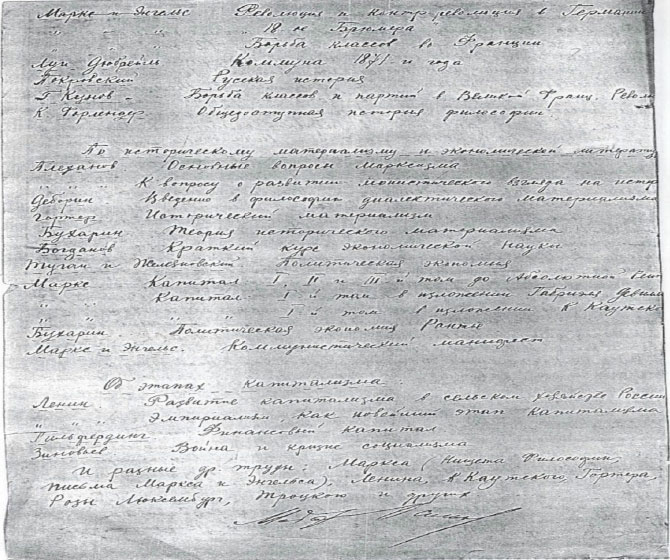 Маркс и Энгельс Революция и контр-революция в Германии
" " " 18-ое Брюмера
" " " Борьба классов во Франции
Луи Дюбрейль Коммуна 1871 и года
Покровский Русская история
Г. Кунов - Борьба классов и партий в Великой Франц. Револ
К. Форлендер Общедоступная история философии.
По историческому материализму и экономической литерату
Плеханов Основные вопросы Марксизма
" " К вопросу о развитии монистического взгляда на истор
Деборин Введение в философию диалектического материализма
Гортер Исторический материализм
Бухарин Теория исторического материализма
Богданов Краткий курс экономической науки
Туган и Железновский Политическая экономия
Маркс Капитал I, II и III й том до Абсолютной
" " Капитал I й том в изложении Габриэля Девиля
" " " I й том в изложении К Каутско
Бухарин Политическая экономия Рантье
Маркс и Энгельс. Коммунистический манифест
Об этапах капитализма.
Ленин Развитие капитализма в сельском хозяйстве России
" " Эмпириализм, как новейший этап капитализма
Гильфердинг Финансовый капитал
Зиновьев Война и кризис социализма
И разные др. труды: Маркса (Нищета Философии,
письма Маркса и Энгельса), Ленина, К Каутского, Гортера,
Розы Люксембург, Троцкого и других